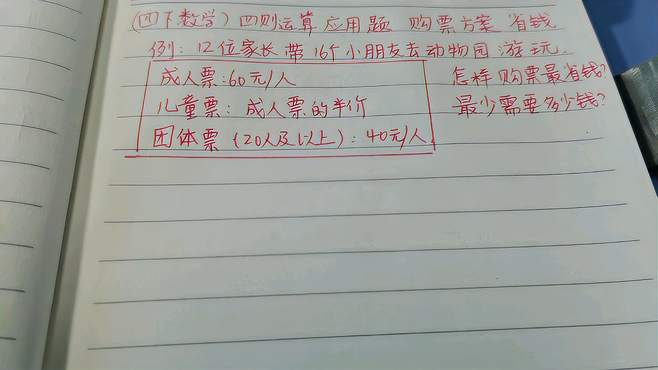 (四下数学) 四则运算应用题 购票方案 省钱
例: 12位家长带16个小朋友去动物园游玩.
成人票:60元/人 怎样购票最省钱?
儿童票: 成人票的半价 最少需要多少钱?
团体票 (20人及以上): 40元/人